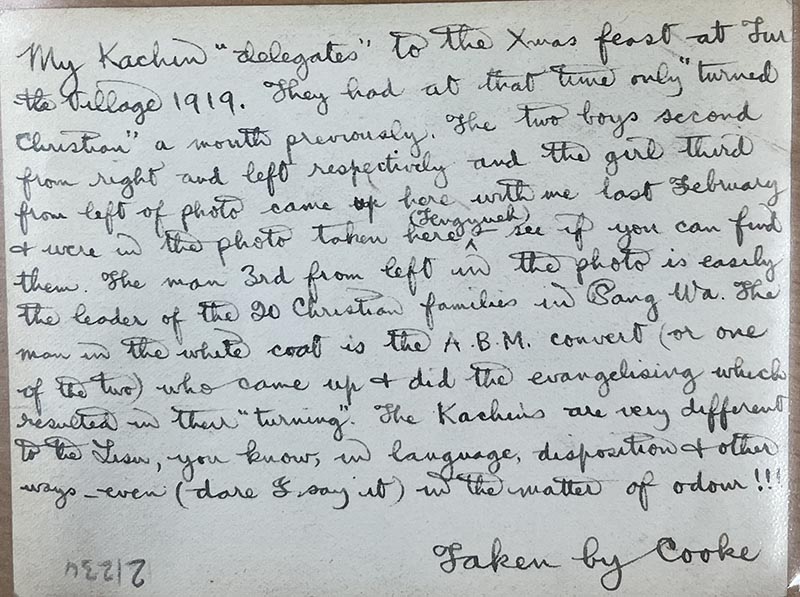 My Kachin "delegates" to the Xmas feast at Fur
the Village 1919. They had at that time only "turned
Christian" a month previously. The two boys second
from right and left respectively and the girl third
from left of photo came up here with me last February
(Tengyueh)
& were in the photo taken here - see if you can find
them. The man 3rd from left in the photo is easily
the leader of the 20 Christian families in Pang Wa. The
man in the white coat is the A.B.M. convert (or one
of the two) who came up & did the evangelising which
resulted in their "turning". The Kachins are very different
to the Lisu, you know, in language, disposition & other
ways - even (dare I say it) in the matter of odour!!!
Taken by Cooke
2/234